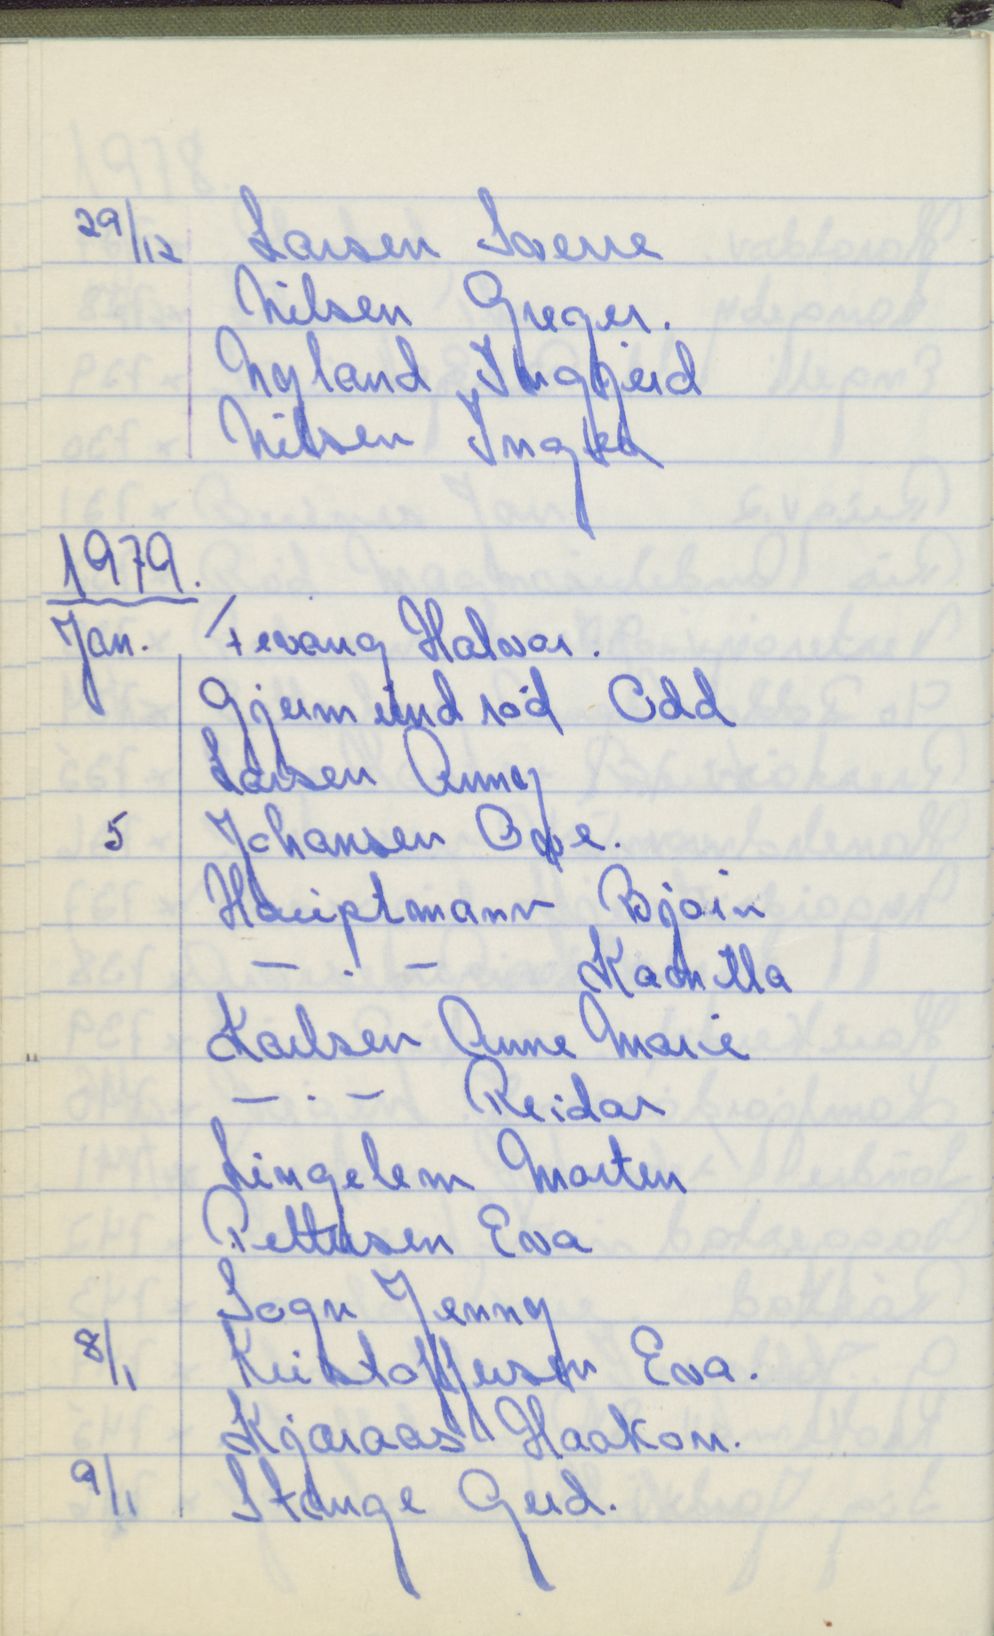 29/12 Larsen Sverre
Nilsen Greger.
Nyland Ingjerd
Nilsen Inger
1979.
Jan. Fevang Halvar.
Gjermundrød Odd
Larsen Anny
5 Johansen Ope.
Hauptmann Bjørn
— . — Kamilla
Karlsen Anne Marie
— . — Reidar
Lingelem Morten
Pettersen Eva
Sogn Jenny
8/1 Kristoffersen Eva.
Kjæraas Haakon.
9/1 Stange Gerd.